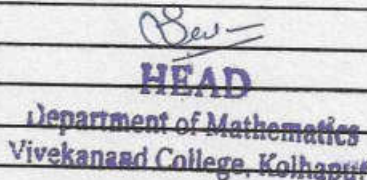 HEAD
Department of Mathematics
Vivekanand College, Kolhapur